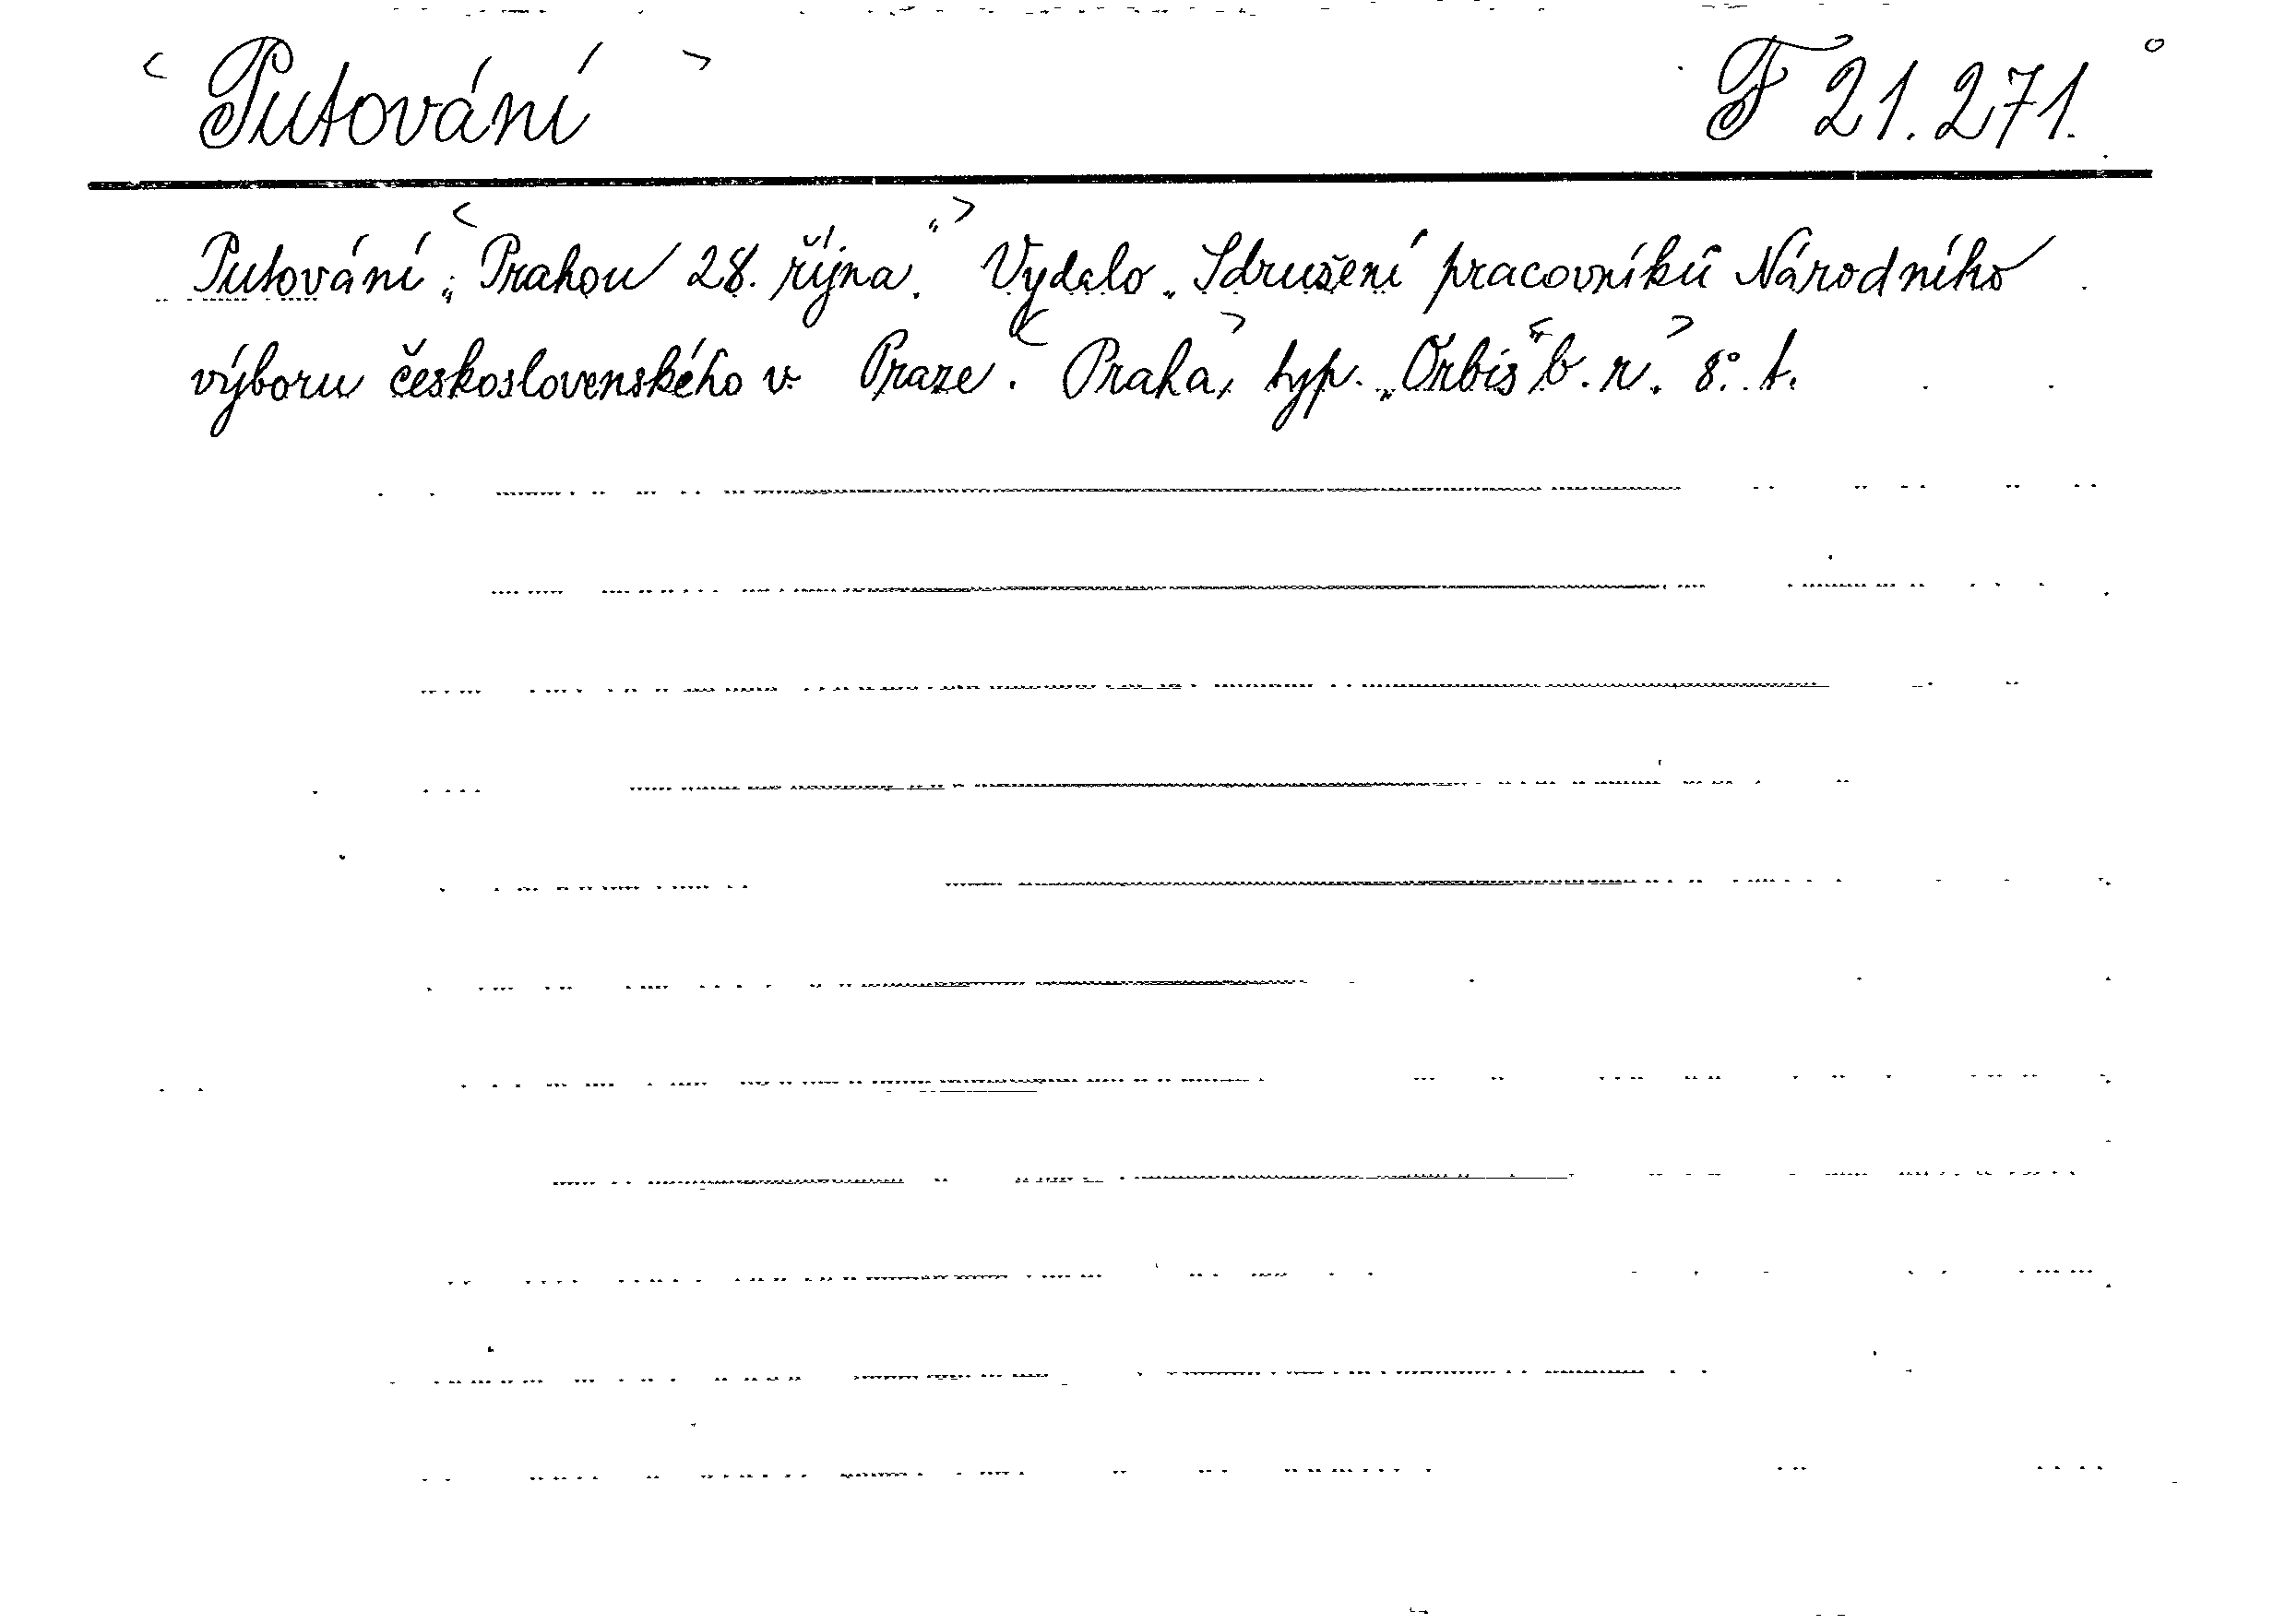 < Putování > F 21.271.
Putování „<Prahou 28. října.“> Vydalo „Sdružení pracovníků Národního
výboru československého v Praze. <Praha,> typ. „Orbis“ <b. r.> 8°. t.